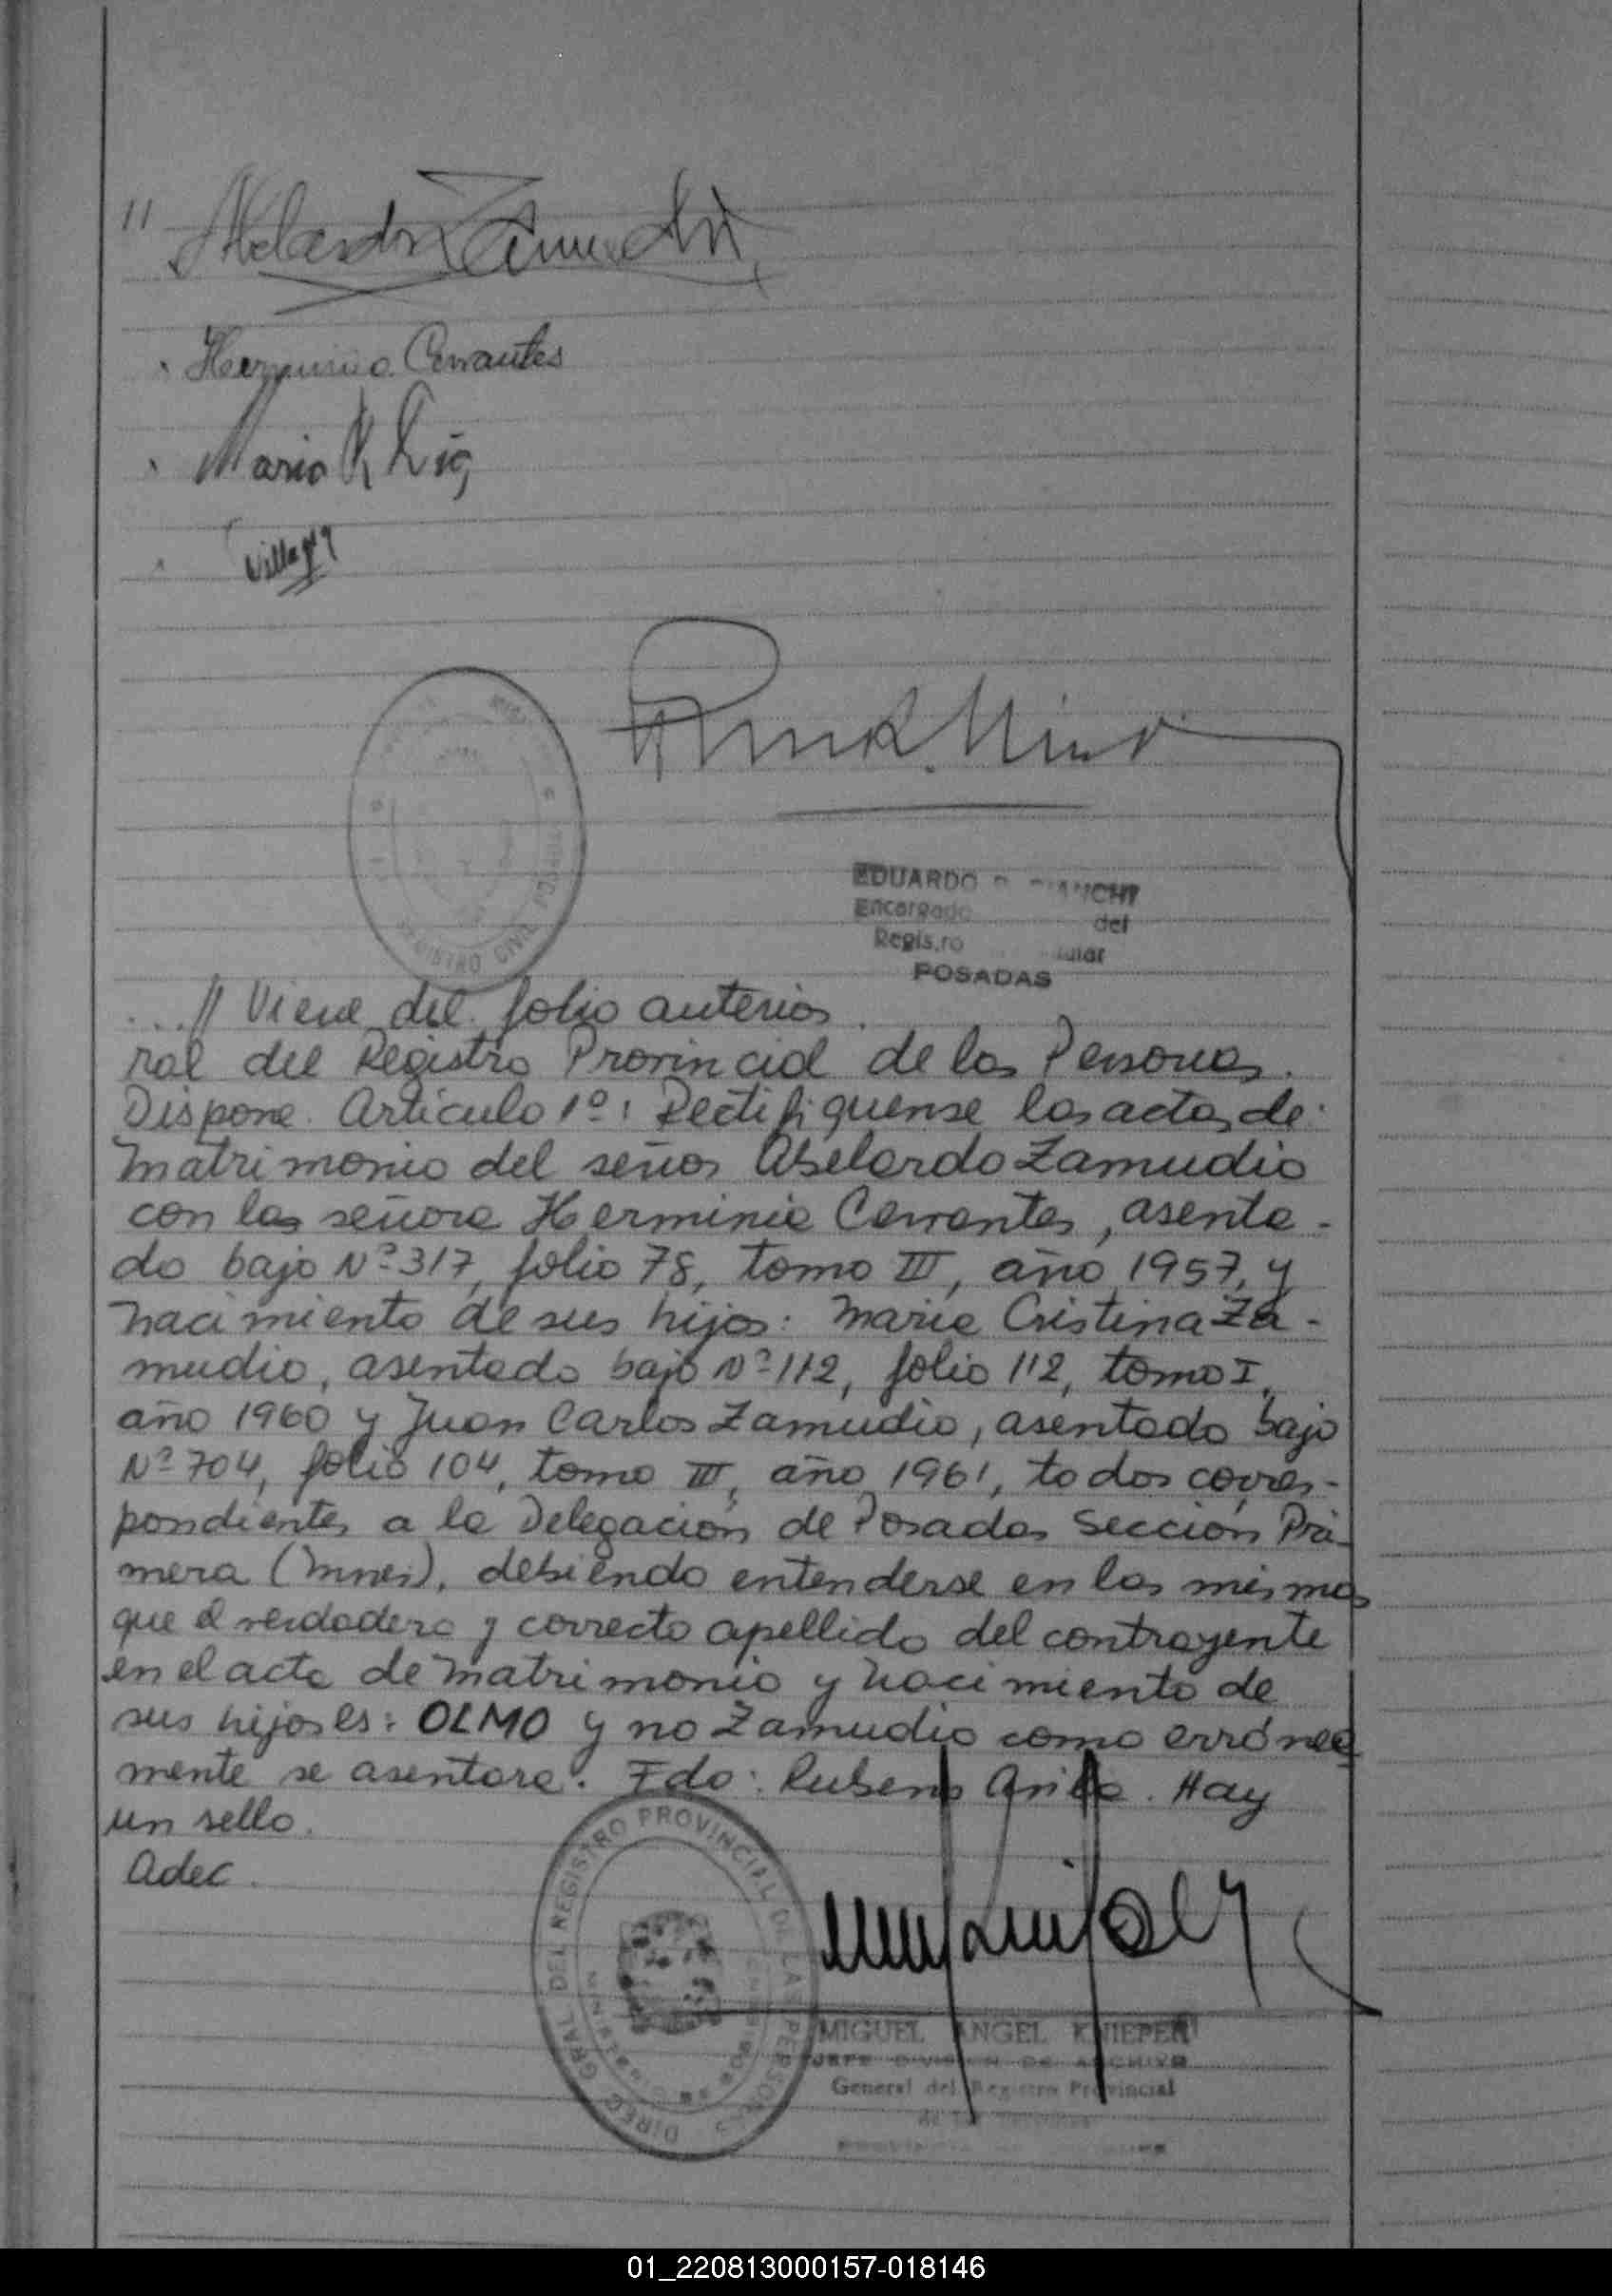 "
Abelardo Zamudio
Herminia Cervantes
Mario R
Villagr
EDUARDO BIANCHI
Encargado del
Regis.ro
POSADAS
...// Viene del folio anterior.
ral del Registro Provincial de las Personas.
Dispone. Artículo 1º: Rectifiquense las actas de:
Matrimonio del señor Abelardo Zamudio
con las señora Herminia Cervantes, asenta-
do bajo Nº 317, folio 78, tomo III, año 1957, y
Nacimiento de sus hijos: Maria Cristina Za-
mudio, asentado bajo Nº 112, folio 112, tomo I,
año 1960 y Juan Carlos Zamudio, asentado bajo
Nº 704, folio 104, tomo III, año 1961, todos corres-
pondientes a la Delegación de Posadas Sección Pri-
mera (Mnes), debiendo entenderse en las mismas
que el verdadero y correcto apellido del contrayente
en el acta de Matrimonio y Nacimiento de
sus hijos es: OLMO y no Zamudio como errónea
mente se asentara. Fdo: Rubens . Hay
un sello.
Adec.
DIREC. GRAL DEL REGISTRO PROVINCIAL DE LAS PERSONAS
MIGUEL ANGEL KNIEPER
JEFE DIVISION DE ARCHIVO
General del Registro Provincial
de las Personas
01_220813000157-018146